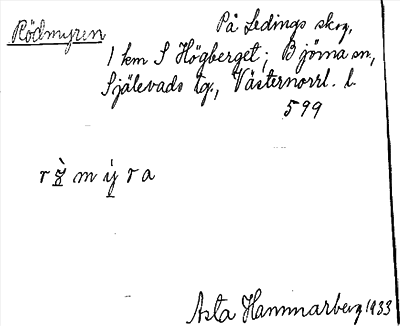 Rödmyren
På Ledings skog,
1 km S Högberget; Björna sn,
Själevads tg., Västernorrl. l.
599
m y r a
Asta Hammarberg 1933